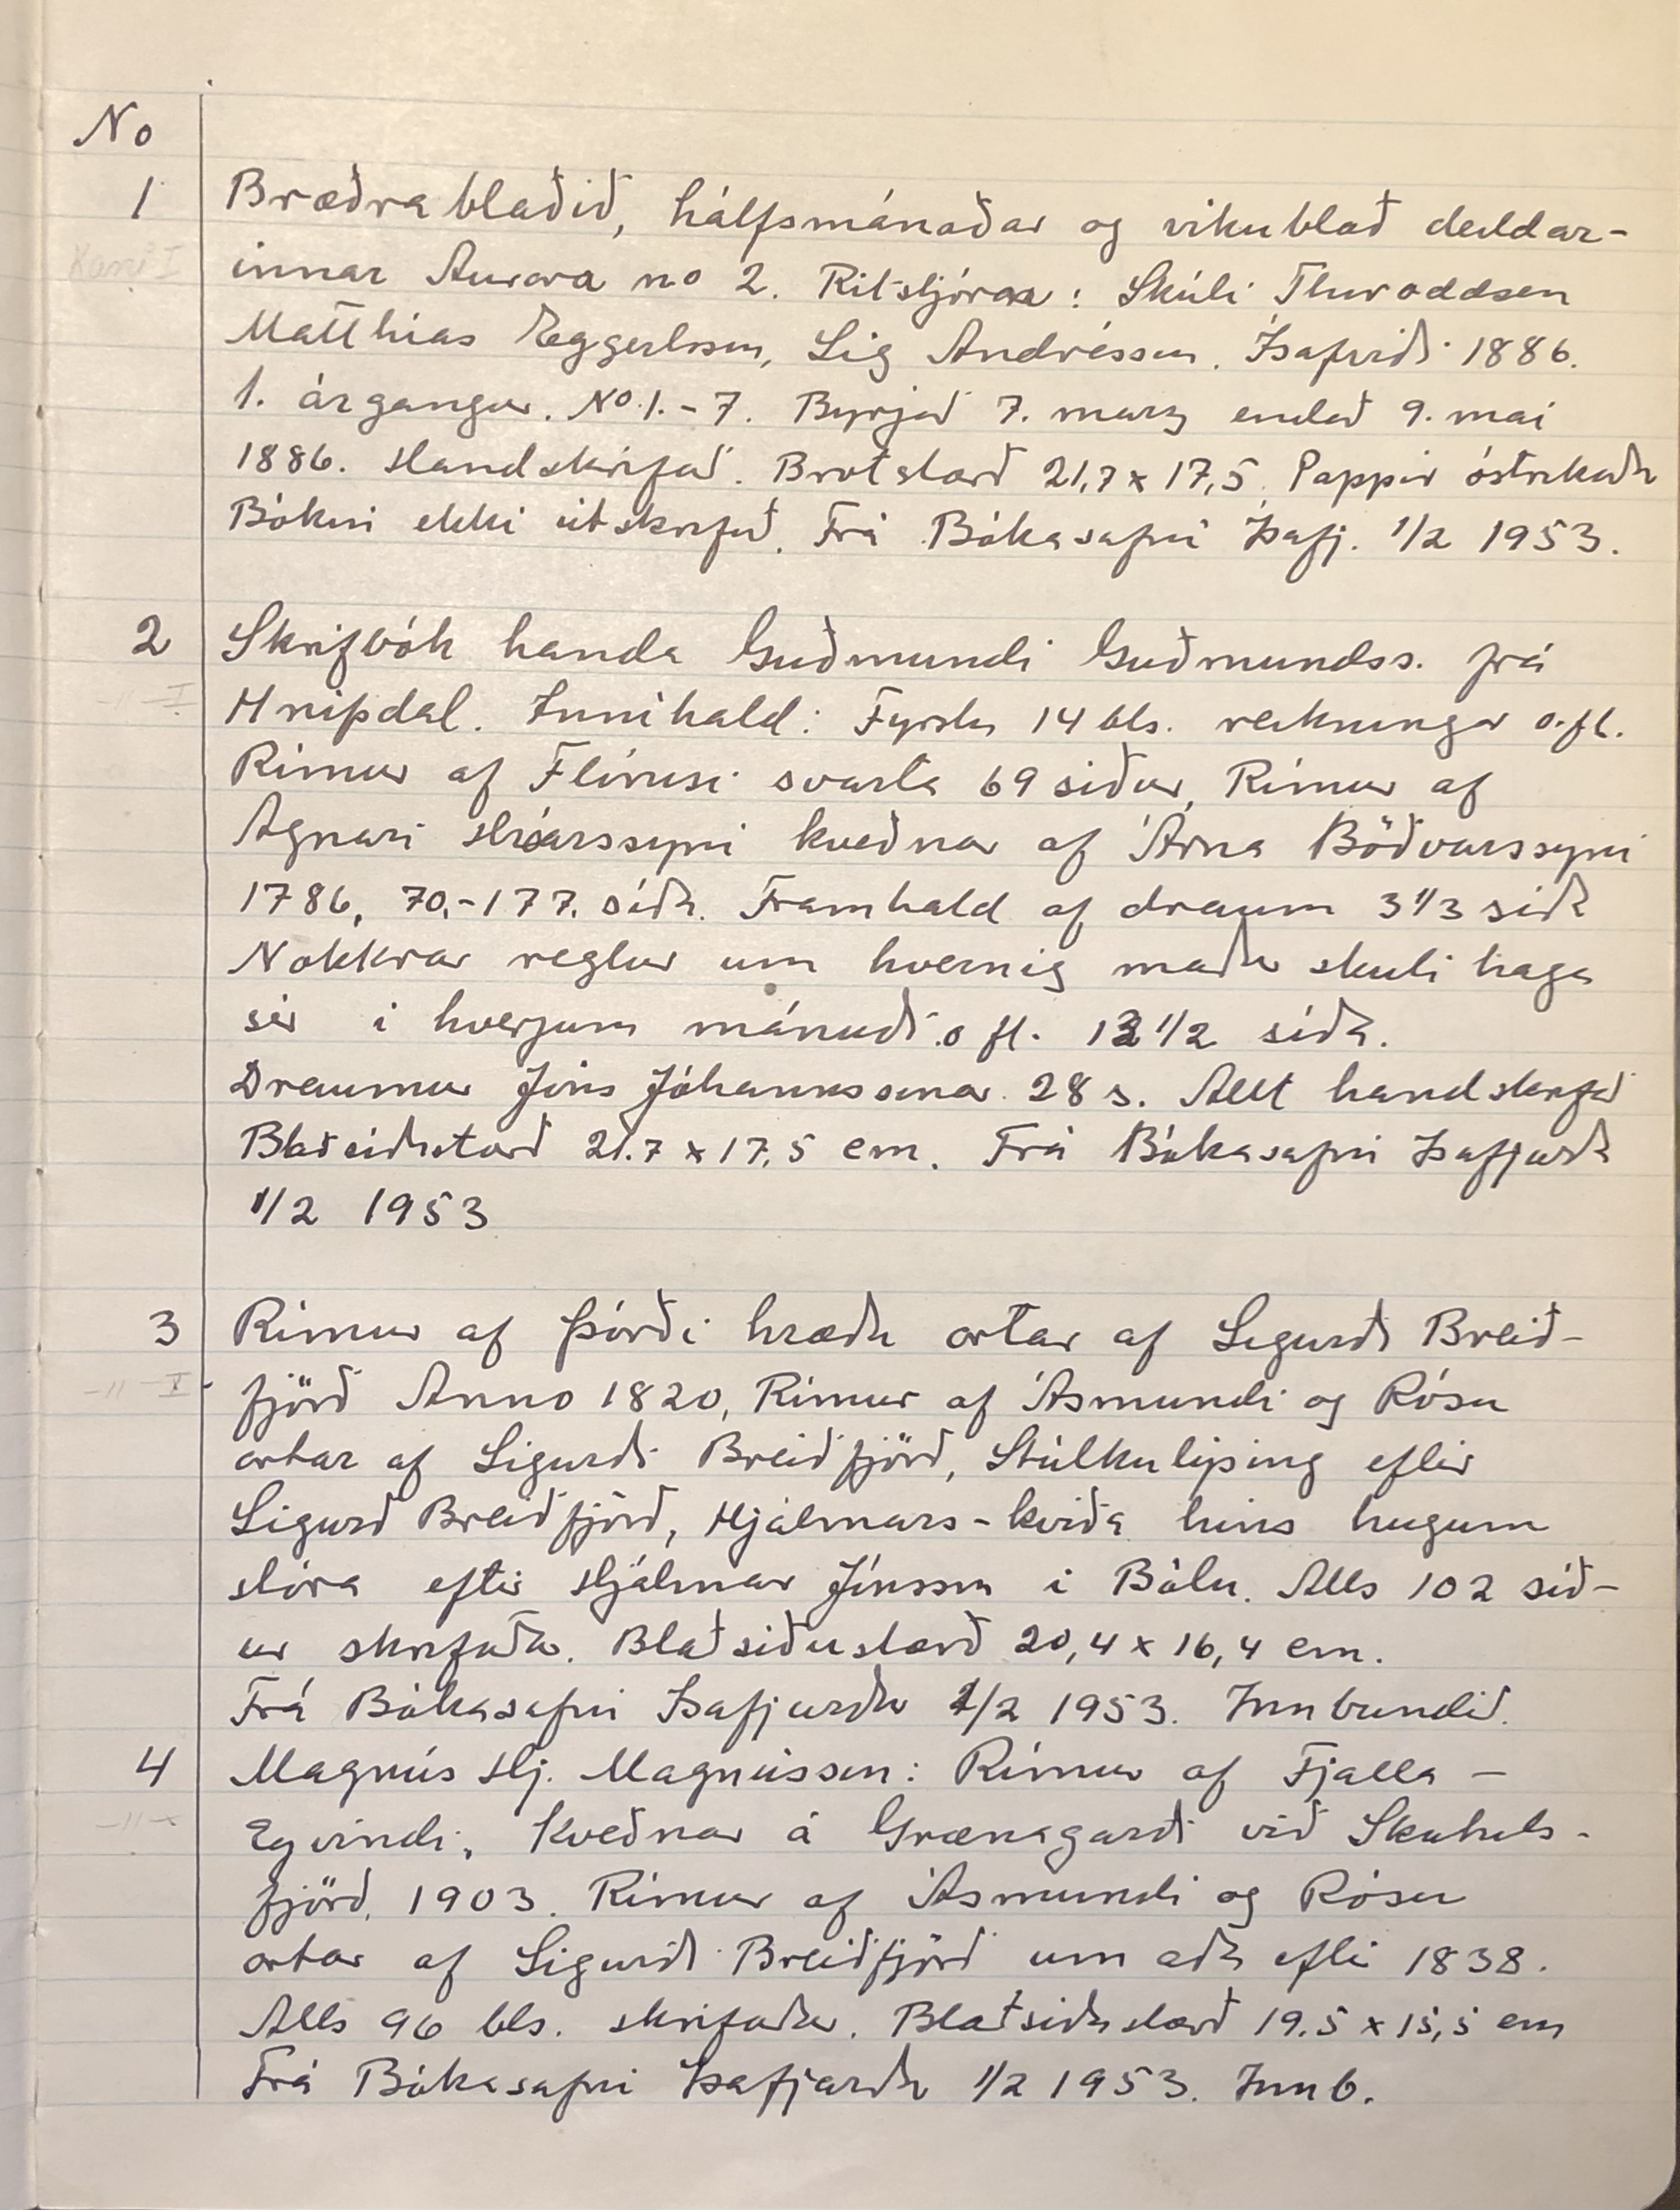 No
1 Bræðrablaðið, hálfsmánaðar og vikublað deildar-
Kassi I innar Aurora no 2. Ritstjórar: Skúli Thoroddsen
Matthias Eggertsson, Sig Andrésson. Ísafirði 1886.
1. árgangur. No. 1. - 7. Byrjað 7. marz endað 9. mai
1886. Handskrifað. Brotstærð 21,7 x 17,5. Pappir óstrikaður
Bókin ekki útskrifuð. Frá Bókasafni Ísafj. 1/2 1953.
2 Skrifbók handa Guðmundi Guðmundss. frá
-"- I Hnífsdal. Innihald: Fyrstu 14 bls. reikningar o.fl.
Rímur af Flóresi svarta 69 síður, Rímur af
Agnari Hróarssyni kveðnar af Árna Böðvarssyni
1786, 70.-177. síðu. Framhald af draum 3 1/3 síðu
Nokkrar reglur um hvernig maður skuli haga
sér í hverjum mánuði o fl. 13 1/2 síða.
Draumur Jóns Jóhannssonar 28 s. Allt handskrifað
Blaðsíðustærð 21.7 x 17,5 cm. Frá Bókasafni Ísafjarðar
1/2 1953
3 Rímur af Þórði hræðu ortar af Sigurði Breið-
-"- I fjörð Anno 1820, Rímur af Ásmundi og Rósu
ortar af Sigurði Breiðfjörð, Stúlkulýsing eftir
Sigurð Breiðfjörð, Hjálmars-kviða hins hugum
stóra eftir Hjálmar Jónsson í Bólu. Alls 102 síð-
ur skrifaðar. Blaðsíðustærð 20,4 x 16,4 cm.
Frá Bókasafni Ísafjarðar 1/2 1953. Innbundið.
4 Magnús Hj. Magnússon: Rímur af Fjalla-
-"- Eyvindi, kveðnar á Grænagarði við Skutuls-
fjörð, 1903. Rímur af Ásmundi og Rósu
ortar af Sigurði Breiðfjörð um eða eftir 1838.
Alls 96 bls. skrifaðar. Blaðsíðustærð 19.5 x 15,5 cm
Frá Bókasafni Ísafjarðar 1/2 1953. Innb.